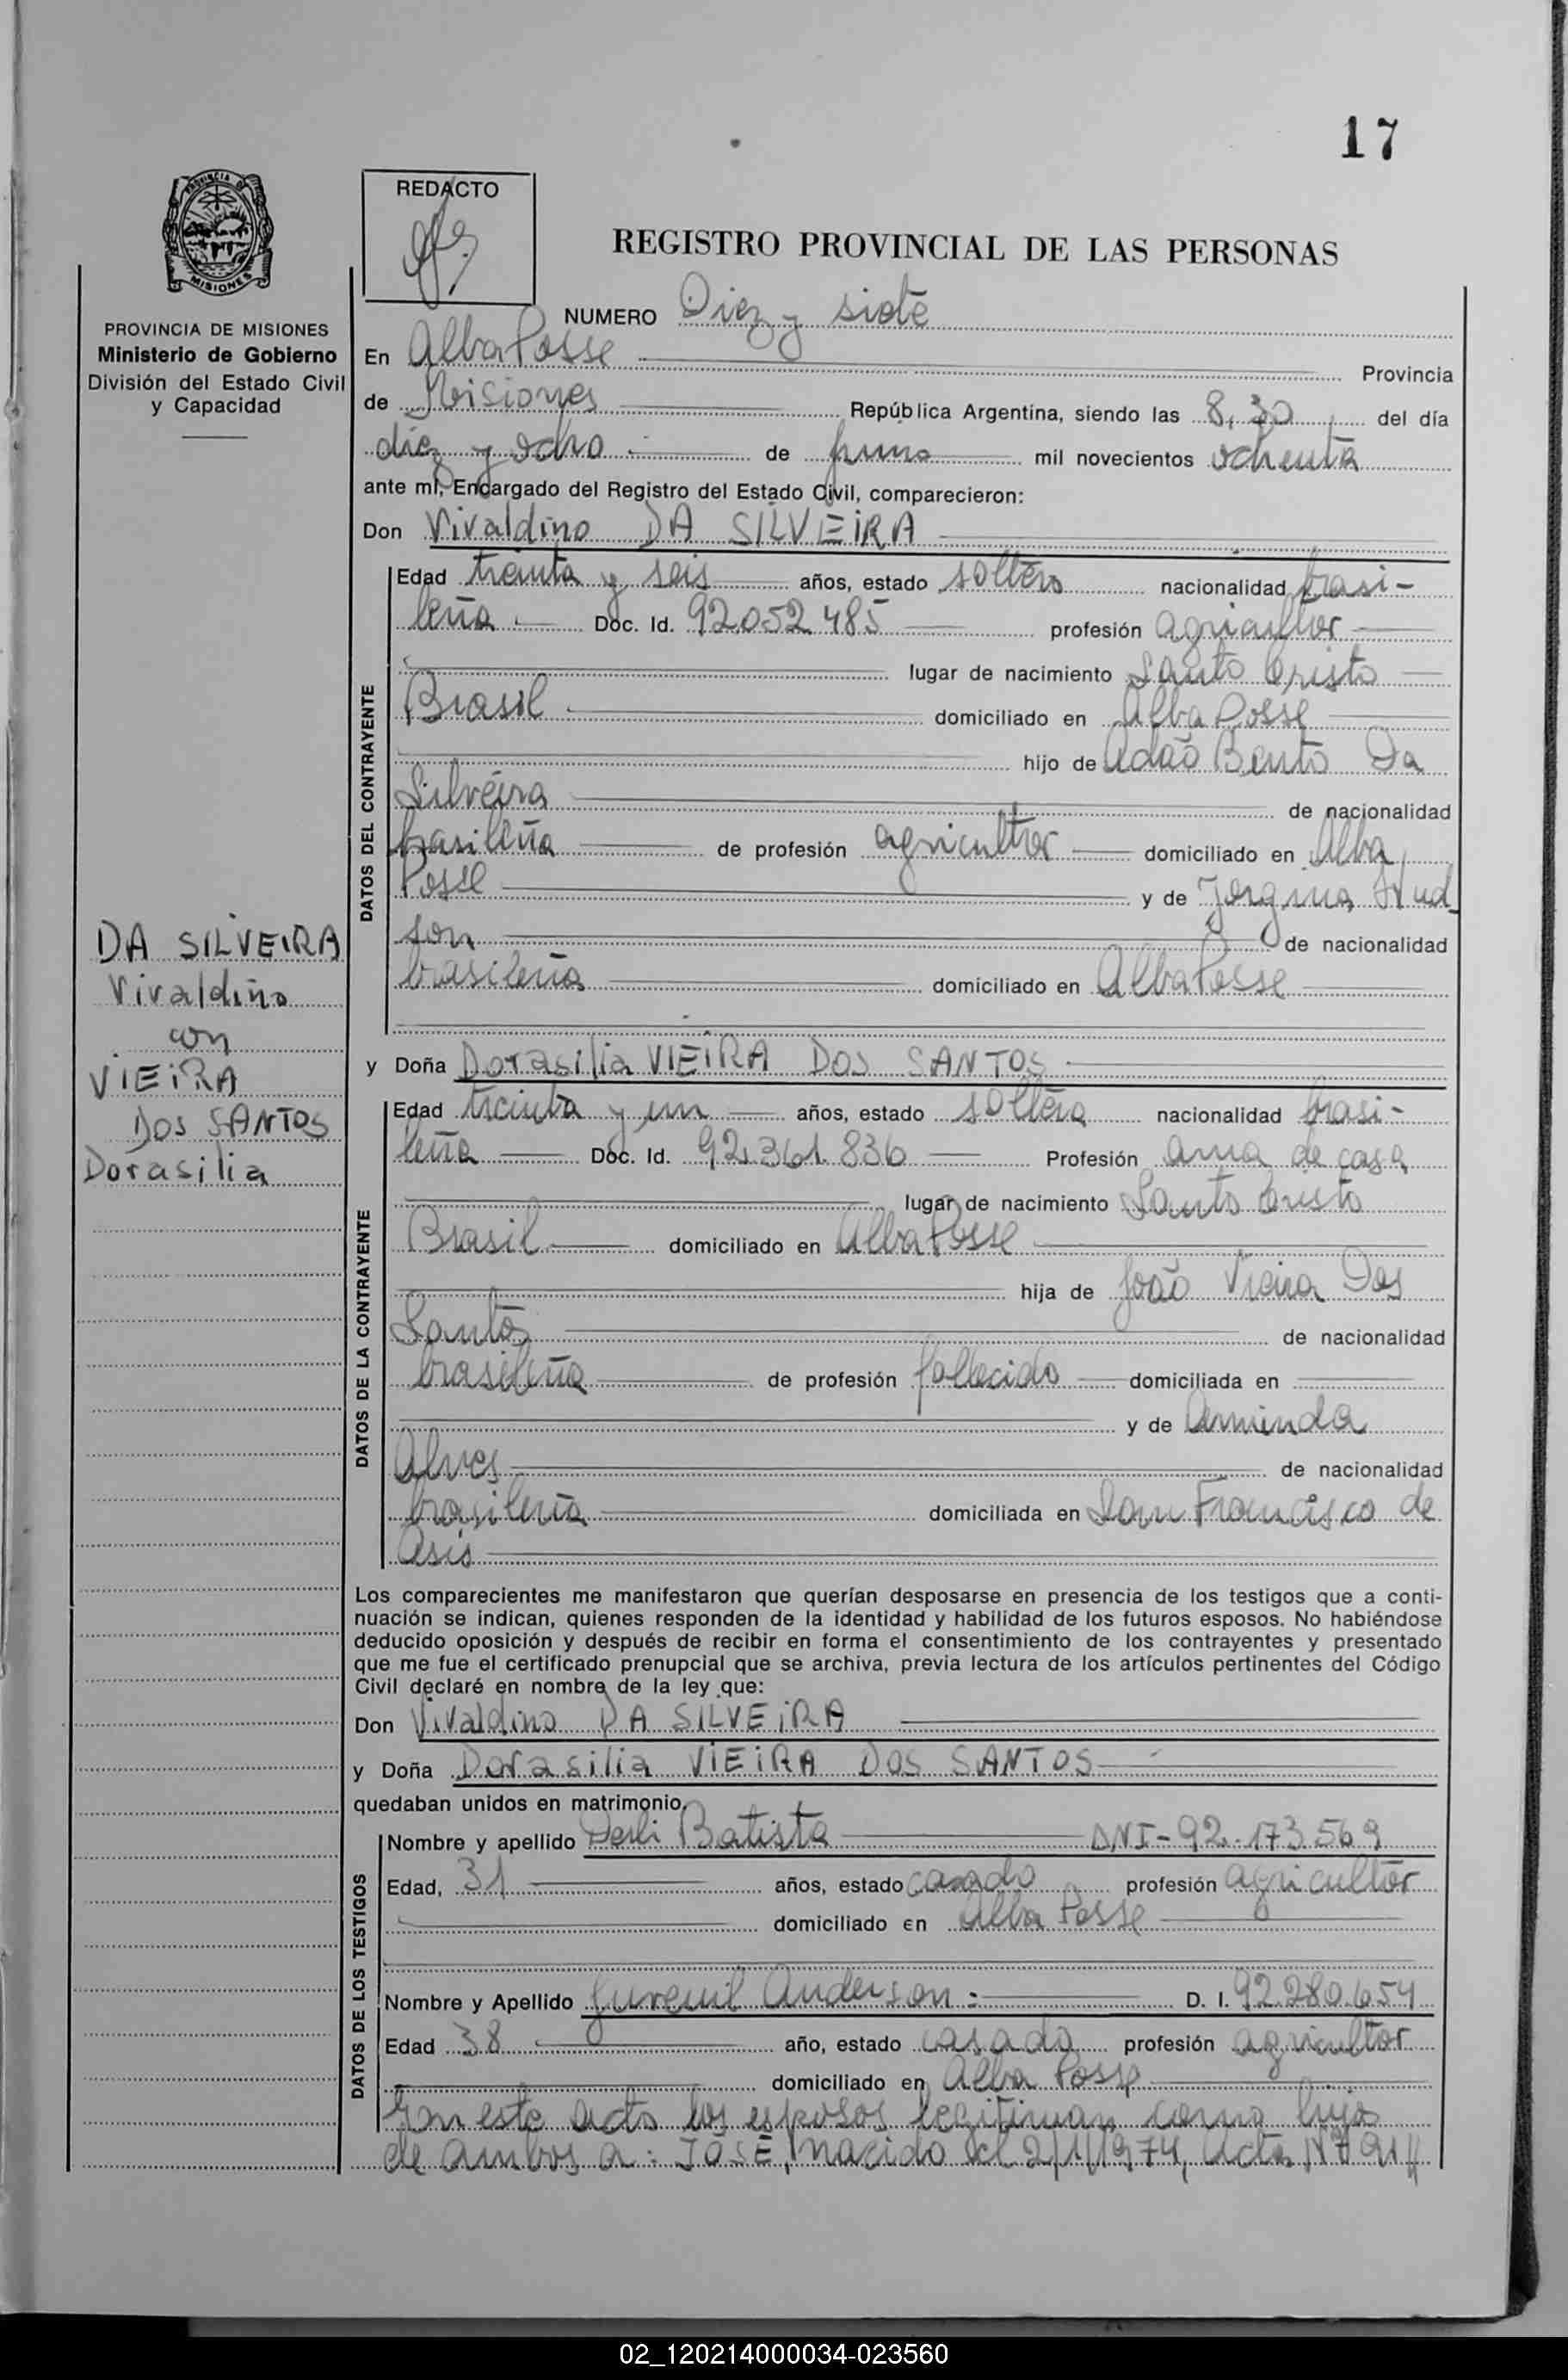 17
PROVINCIA DE MISIONES
PROVINCIA DE MISIONES
Ministerio de Gobierno
División del Estado Civil
y Capacidad
REDACTO
REGISTRO PROVINCIAL DE LAS PERSONAS
NUMERO Diez y siete
En Alba Posse Provincia
de Misiones República Argentina, siendo las 8,30 del día
diez y ocho de junio mil novecientos ochenta
ante mí, Encargado del Registro del Estado Civil, comparecieron:
Don Vivaldino DA SILVEIRA
DATOS DEL CONTRAYENTE
Edad treinta y seis años, estado soltero nacionalidad brasi-
leña Doc. Id. 92.052.485 profesión agricultor
lugar de nacimiento Santo Cristo
Brasil domiciliado en Alba Posse
hijo de Adão Bento Da
Silveira de nacionalidad
brasileña de profesión agricultor domiciliado en Alba
Posse y de Jorgina Hud-
son de nacionalidad
brasileña domiciliado en Alba Posse
DA SILVEIRA
Vivaldino
con
VIEIRA
DOS SANTOS
Dorasilia
y Doña Dorasilia VIEIRA DOS SANTOS
DATOS DE LA CONTRAYENTE
Edad treinta y un años, estado soltera nacionalidad brasi-
leña Doc. Id. 92.361.836 Profesión ama de casa
lugar de nacimiento Santo Cristo
Brasil domiciliado en Alba Posse
hija de João Vieira Dos
Santos de nacionalidad
brasileña de profesión fallecido domiciliada en
y de Arminda
Alves de nacionalidad
brasileña domiciliada en San Francisco de
Asis
Los comparecientes me manifestaron que querían desposarse en presencia de los testigos que a conti-
nuación se indican, quienes responden de la identidad y habilidad de los futuros esposos. No habiéndose
deducido oposición y después de recibir en forma el consentimiento de los contrayentes y presentado
que me fue el certificado prenupcial que se archiva, previa lectura de los artículos pertinentes del Código
Civil declaré en nombre de la ley que:
Don Vivaldino DA SILVEIRA
y Doña Dorasilia VIEIRA DOS SANTOS
quedaban unidos en matrimonio.
DATOS DE LOS TESTIGOS
Nombre y apellido Derli Batista DNI-92.173.569
Edad, 31 años, estado casado profesión agricultor
domiciliado en Alba Posse
Nombre y Apellido Juvenil Anderson D. I. 92.280.654
Edad 38 año, estado casado profesión agricultor
domiciliado en Alba Posse
En este acto los esposos legitiman como hijos
de ambos a: JOSE, nacido el 2/1/1974, Acta Nº 91//
02_120214000034-023560